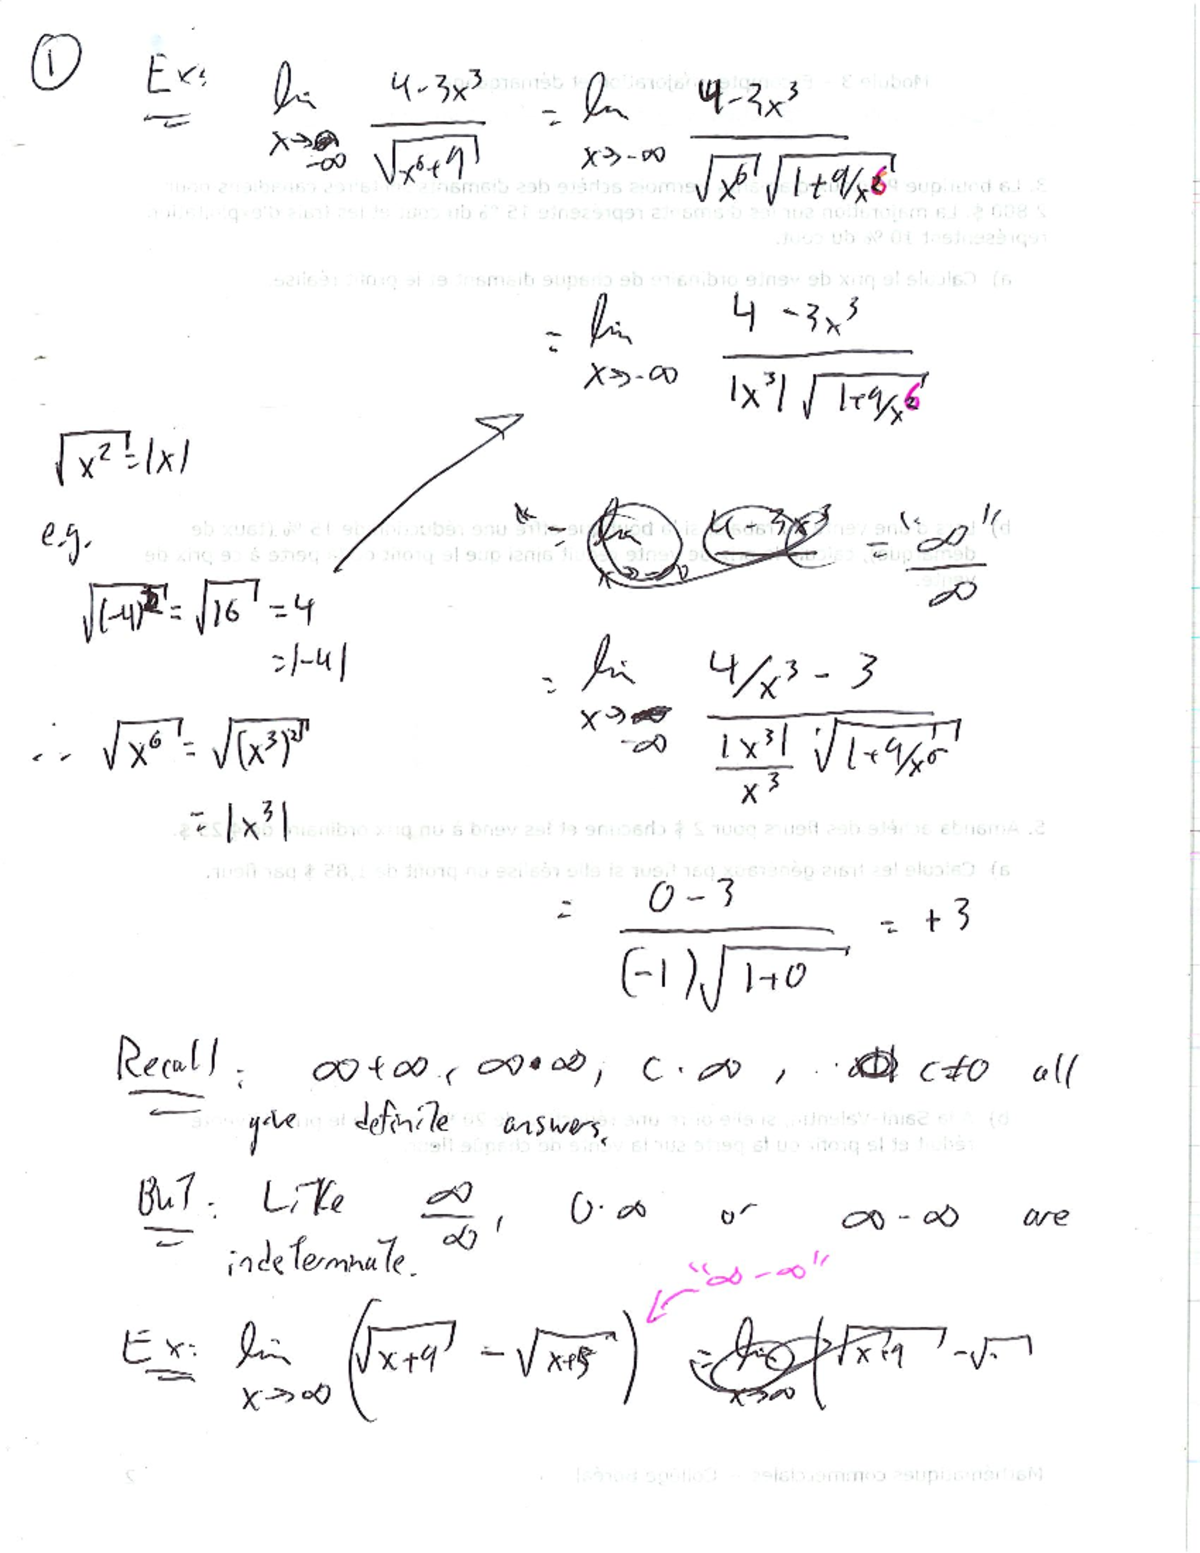 ① Ex: lim x→-∞ (4-3x³)/√(x⁶+9) = lim x→-∞ (4-3x³)/(√x⁶ √(1+9/x⁶))
= lim x→-∞ (4-3x³)/(|x³| √(1+9/x⁶))
√x² = |x|
e.g.
√(-4)² = √16 = 4
= |-4|
∴ √x⁶ = √(x³)²
= |x³|
= "∞/∞"
= lim x→-∞ (4/x³ - 3)/((|x³|/x³) √(1+9/x⁶))
= (0-3)/((-1)√(1+0)) = +3
Recall: ∞+∞, ∞•∞, c·∞, c≠0 all
give definite answers.
BUT: Like ∞/∞, 0·∞ or ∞-∞ are
indeterminate.
"∞-∞"
Ex: lim x→∞ (√(x+9) - √(x+